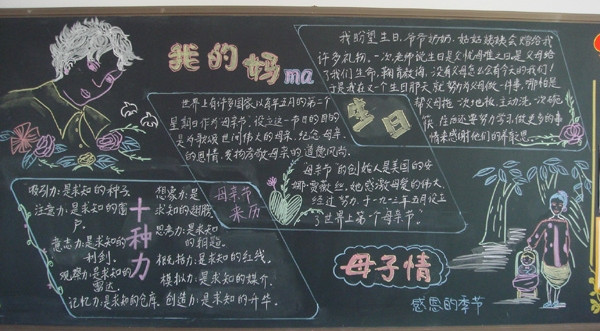 我的妈ma
我盼望生日,爷爷奶奶、姑姑
许多礼物,一次,老师说生日是父忧母难之日,是父母给
了我们生命,
于是我在又一个生日那天就努力为父母做一件事,哪怕是
帮父母拖一次地板,主动洗一次碗
筷,在后还要努力学习做更多的事
情来感谢他们的养育恩。
生日
世界上有许多国家以每年五月的第二个
星期日作为母亲节,设立这一节日的目的
是为歌颂世间伟大的母亲,纪念母亲
的恩情,发扬孝敬母亲的道德风尚。
母亲节的创始人是美国的安
娜·贾薇丝,她感激母爱的伟大,
经过努力,于一九一三年五月设立
了世界上第一个母亲节。
母亲节
来历
十种力
吸引力:是求知的种子
注意力:是求知的窗
户。
意志力:是求知的
利剑。
观察力:是求知的
雷达。
记忆力:是求知的仓库。
想象力:是
求知的翅膀
思考力:是求知
的钥匙。
自控力:是求知的红线。
模拟力:是求知的媒介。
创造力:是求知的升华。
母子情
感恩的季节